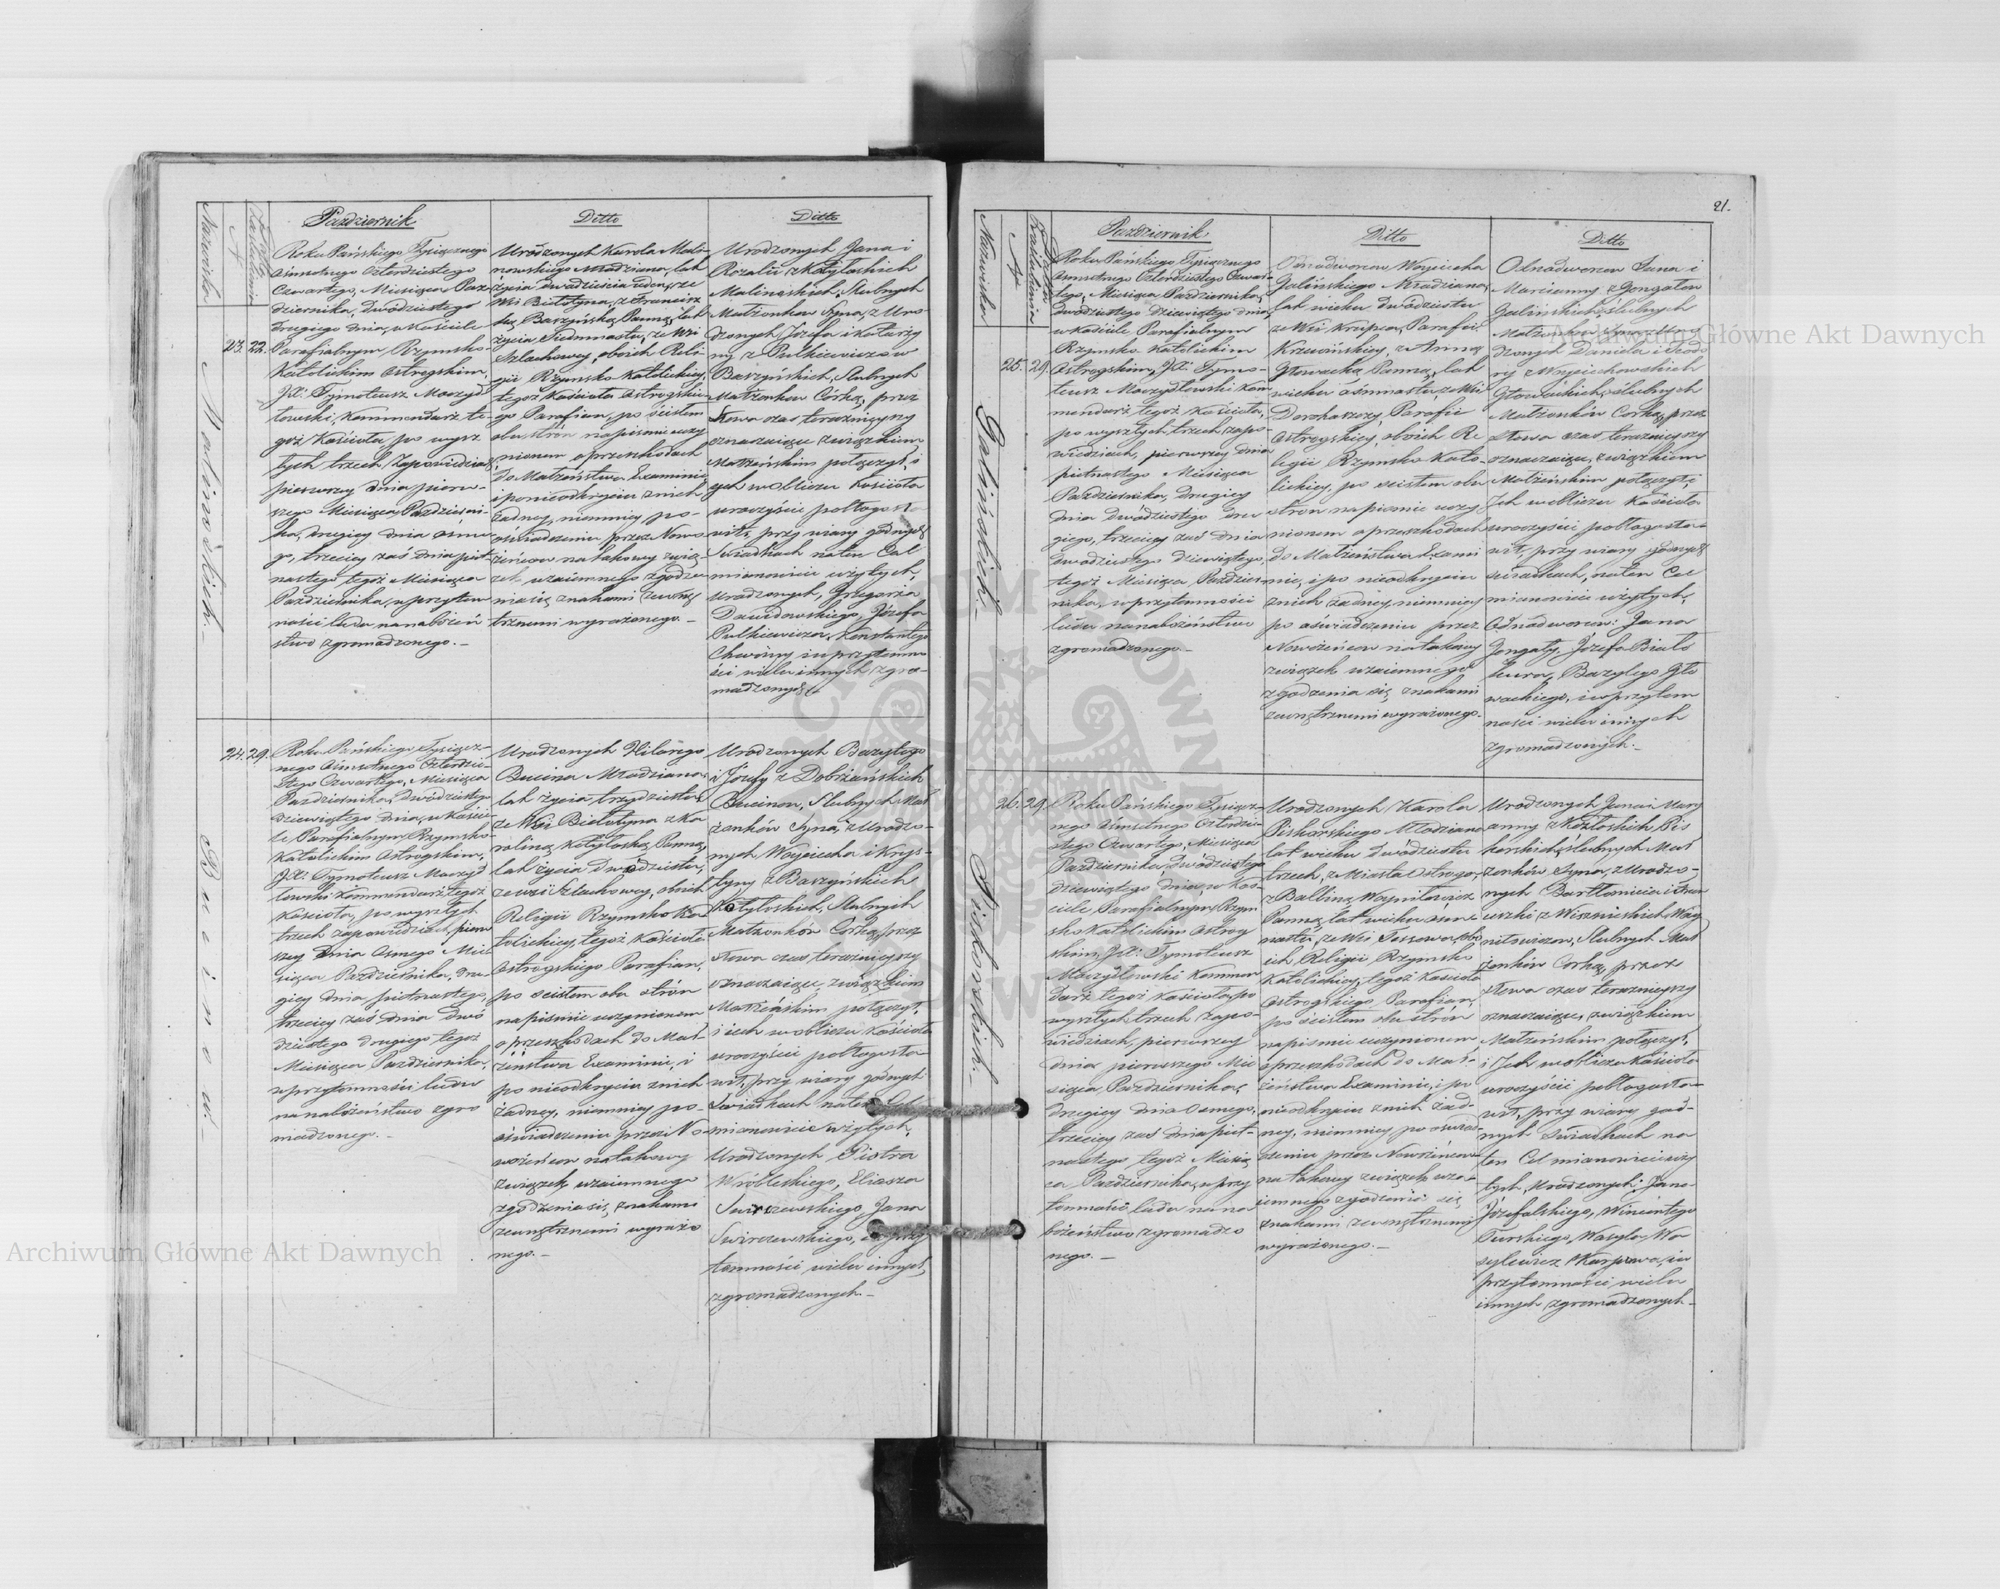 Październik
Roku Pańskiego Tysiącznego
osimsetnego Czterdziestego
Czwartego, Miesiąca Paz-
dziernika, dwódziestego
drugiego dnia, w Kościele
Parafialnym Rzymsko-
Katolickim Ostrogskim,
JX: Tymoteusz Moczyd
łowski, Kommendarz te-
goż Kościoła, po wysz
łych trzech Zapowiedziach
pierwszey dnia pierw-
szego Miesiąca Pazdzierni-
ka, drugiey dnia osme-
go, trzeciey zaś dnia piet-
nastego tegoż Miesiąca
Października, w przytom
ności ludu na nabożeń
stwo zgromadzonego. –
Ditto
Urodzonych Karola Mali-
nowskiego Młodziana, lat
życia dwadzieścia jeden, ze
Wsi Białotyna, z Francisz
ką Baszyńską Panną, lat
życia Siedmnastu, ze Wsi
Szlachowey, oboich Reli-
gii Rzymsko Katolickiey,
tegoż Kościoła Ostrogskie-
go Parafian, po ścisłem
obu strón na piśmie uczy
nionem o przeszkodach
do Małżeństwa Examinie
i po nieodkryciu z nich
żadney, niemniey po-
oświadczeniu przez Nowo-
żeńców na takowy zwią-
zek wzaiemnego zgodze-
nia się znakami zewnę-
trznemi wyrażonego. –
Ditto
Urodzonych Jana i
Rozalii z Kotyłoskich
Malinoskich, Slubnych
Małżonków Syna, z Uro-
dzonych Józefa i Katarzy
ny z Pulkiewiczów
Baszyńskich, Slubnych
Małżonków Córką, przez
Słowa czas teraznieyszy
oznaczaiące związkiem
Małżeńskim połączył, i
ych w obliczu Kościoła
uroczyście pobłogosła
wił, przy wiary godnych
Swiadkach na ten Cel
mianowicie wziętych,
Urodzonych, Grzegorza
Dawidowskiego, Józefa
Pulkiewicza, Konstantego
i w przytomno
ści wielu innych zgro-
madzonych.
23. 22.
Malinoskich.
24. 29.
Roku Pańskiego Tysiącz-
nego Osimsetnego Czterdzie-
stego Czwartego, Miesiąca
Pazdziernika, dwódziestego
dziewiątego dnia, w Koscie-
le Parafialnym Rzymsko-
Katolickim Ostrogskim,
JX: Tymoteusz Moczyd
łowski Kommendarz tegoż
Kościoła, po wyszłych
trzech zapowiedziach, pierw
szey dnia Osmego Mie
siąca Pazdziernika, dru-
giey dnia pietnastego,
trzeciey zaś dnia dwó
dziestego drugiego tegoż
Miesiąca Pazdziernika,
w przytomności ludu
na nabożeństwo zgro
madzonego. –
Urodzonych Hilarego
Bucina Młodziana,
lat życia trzydziestu,
ze Wsi Białotyna z Ka
roliną Kotyłoską Panną,
lat życia Dwódziestu,
ze wsi Szlachowey, oboich
Religii Rzymsko Ka
tolickiey, tegoż Kościoła
Ostrogskiego Parafian,
po scisłem obu strón
na piśmie uczynionem
o przeszkodach do Mał-
żeństwa Examinie, i
po nieodkryciu z nich
żadney, niemniey po-
oświadczeniu przez No-
wożeńców na takowy
związek wzaiemnego
zgodzenia się, znakami
zewnętrznemi wyrażo
nego. –
Urodzonych Bazylego
i Józefy z Dobrzańskich
Bucinow, Slubnych Mał
żonków Syna, z Urodzo-
nych Woyciecha i Krys-
tyny z Baszyńskich
Kotyłoskich, Slubnych
Małżonków Córką, przez
Słowa czas teraznieyszy
oznaczaiące, związkiem
Małżeńskim połączył,
i ich w obliczu Kościoła
uroczyście pobłogosła-
wił, przy wiary godnych
Swiadkach na ten Cel
mianowicie wziętych,
Urodzonych Piotra
Wróbleskiego, Eliasza
Swirczewskiego, Jana
Swirczewskiego, i w przy
tomności wielu innych,
zgromadzonych. –
Bucinow. –
21.
Październik.
Roku Pańskiego Tysiącznego
Osmsetnego Czterdziestego Czwar-
tego, Miesiąca Pazdziernika,
dwódziestego dziewiątego dnia,
w kościele Parafialnym
Rzymsko Katolickim
Ostrogskim, JX: Tymo-
teusz Moczydłowski Kom
mendarz tegoż Kościoła,
po wyszłych trzech zapo-
wiedziach, pierwszey dnia
pietnastego Miesiąca
Pazdziernika, drugiey
dnia dwódziestego dru
giego, trzeciey zaś dnia
dwódziestego dziewiątego,
tegoż Miesiąca Pazdzier-
nika, w przytomności
ludu na nabożeństwo
zgromadzonego. –
Ditto
Odnodworców Woyciecha
Galińskiego Młodziana,
lat wieku dwódziestu
ze Wsi Krupca, Parafii
z Anną
Głowacką Panną, lat
wieku ośmnastu, ze Wsi
Parafii
Ostrogskiey, oboich Re
ligii Rzymsko Kato-
lickiey, po scisłem obu
strón na piśmie uczy
nionem o przeszkodach
do Małżeństwa Exami
nie, i po nieodkryciu
z nich żadney, niemniey
po oświadczeniu przez
Nowożeńcow na takowy
związek wzaiemnego
zgodzenia się, znakami
zewnętrznemi wyrażonego. –
Ditto
Odnodworcow Jana i
Maryanny z Gongałow
Galińskich, ślubnych
Małżonkow Syna, z Uro
dzonych Daniela i Teodo
ry z Woyciechowskich
Głowackich, ślubnych
Małżonków Córką, przez
Słowa czas teraznieyszy
oznaczaiące, związkiem
Małżeńskim połączył, i
Ich w obliczu Kościoła
uroczyście pobłogosła-
wił, przy wiary godnych
świadkach, na ten Cel
mianowicie wziętych,
Odnodworcow: Jana
Gongały, Józefa Biało
kura, Bazylego Gło
wackiego, i w przytom
ności wielu innych
zgromadzonych. –
25. 29.
Galińskich. –
26. 29.
Roku Pańskiego Tysiącz-
nego Osmsetnego Czterdzie-
stego Czwartego, Miesiąca
Pazdziernika, dwódziestego
dziewiątego dnia, w Koś-
ciele Parafialnym Rzym
sko Katolickim Ostrog
skim, JX: Tymoteusz
Moczydłowski Kommen
darz tegoż Kościoła, po
wyszłych trzech zapo-
wiedziach, pierwszey
dnia pierwszego Mie
siąca Pazdziernika,
drugiey dnia Osmego,
trzeciey zaś dnia piet-
nastego tegoż Miesią
ca Pazdziernika, w przy
tomności ludu na na
bożeństwo zgromadzo
nego. –
Urodzonych Karola
Piskorskiego Młodziana
lat wieku dwódziestu
trzech, z Miasta Ostroga,
z Balbiną Woynitowicz
Panną, lat wieku osm
nastu, ze Wsi Tessowa, obo
ich Religii Rzymsko
Katolickiey, tegoż Kościoła
Ostrogskiego Parafian,
po ścisłem obu strón
na piśmie uczynionem
o przeszkodach do Mał-
żeństwa Examinie, i po
nieodkryciu z nich żad-
ney, niemniey po oswiad-
czeniu przez Nowożeńców
na takowy związek wza-
iemnego zgodzenia się,
znakami zewnętrznemi
wyrażonego. –
Urodzonych Jana i Mary
anny z Kozłoskich Pis
korskich, ślubnych Mał
żonków Syna, z Urodzo-
nych Bartłomieia i Fran
ciszki z Wiszniewskich Woy
nitowiczow, Slubnych Mał
żonków Córką, przez
Słowa czas teraznieyszy
oznaczaiące, związkiem
Małżeńskim połączył,
i Ich w obliczu Kościoła
uroczyście pobłogosła-
wił, przy wiary god-
nych Swiadkach na
ten Cel mianowicie wzię
tych, Urodzonych: Jana
Józefalskiego, Wincentego
Turskiego, Wasyla Wa
sylewicz Karpowa, i w
przytomności wielu
innych zgromadzonych. –
Piskorskich.
Archiwum Główne Akt Dawnych
Archiwum Główne Akt Dawnych